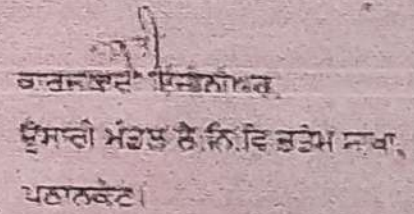 ਕਾਰਜਕਾਰੀ ਇੰਜੀਨੀਅਰ,
ਉਸਾਰੀ ਮੰਡਲ ਲੋ.ਨਿ.ਵਿ ਭਤੇਮ ਸਾਖਾ,
ਪਠਾਨਕੋਟ।